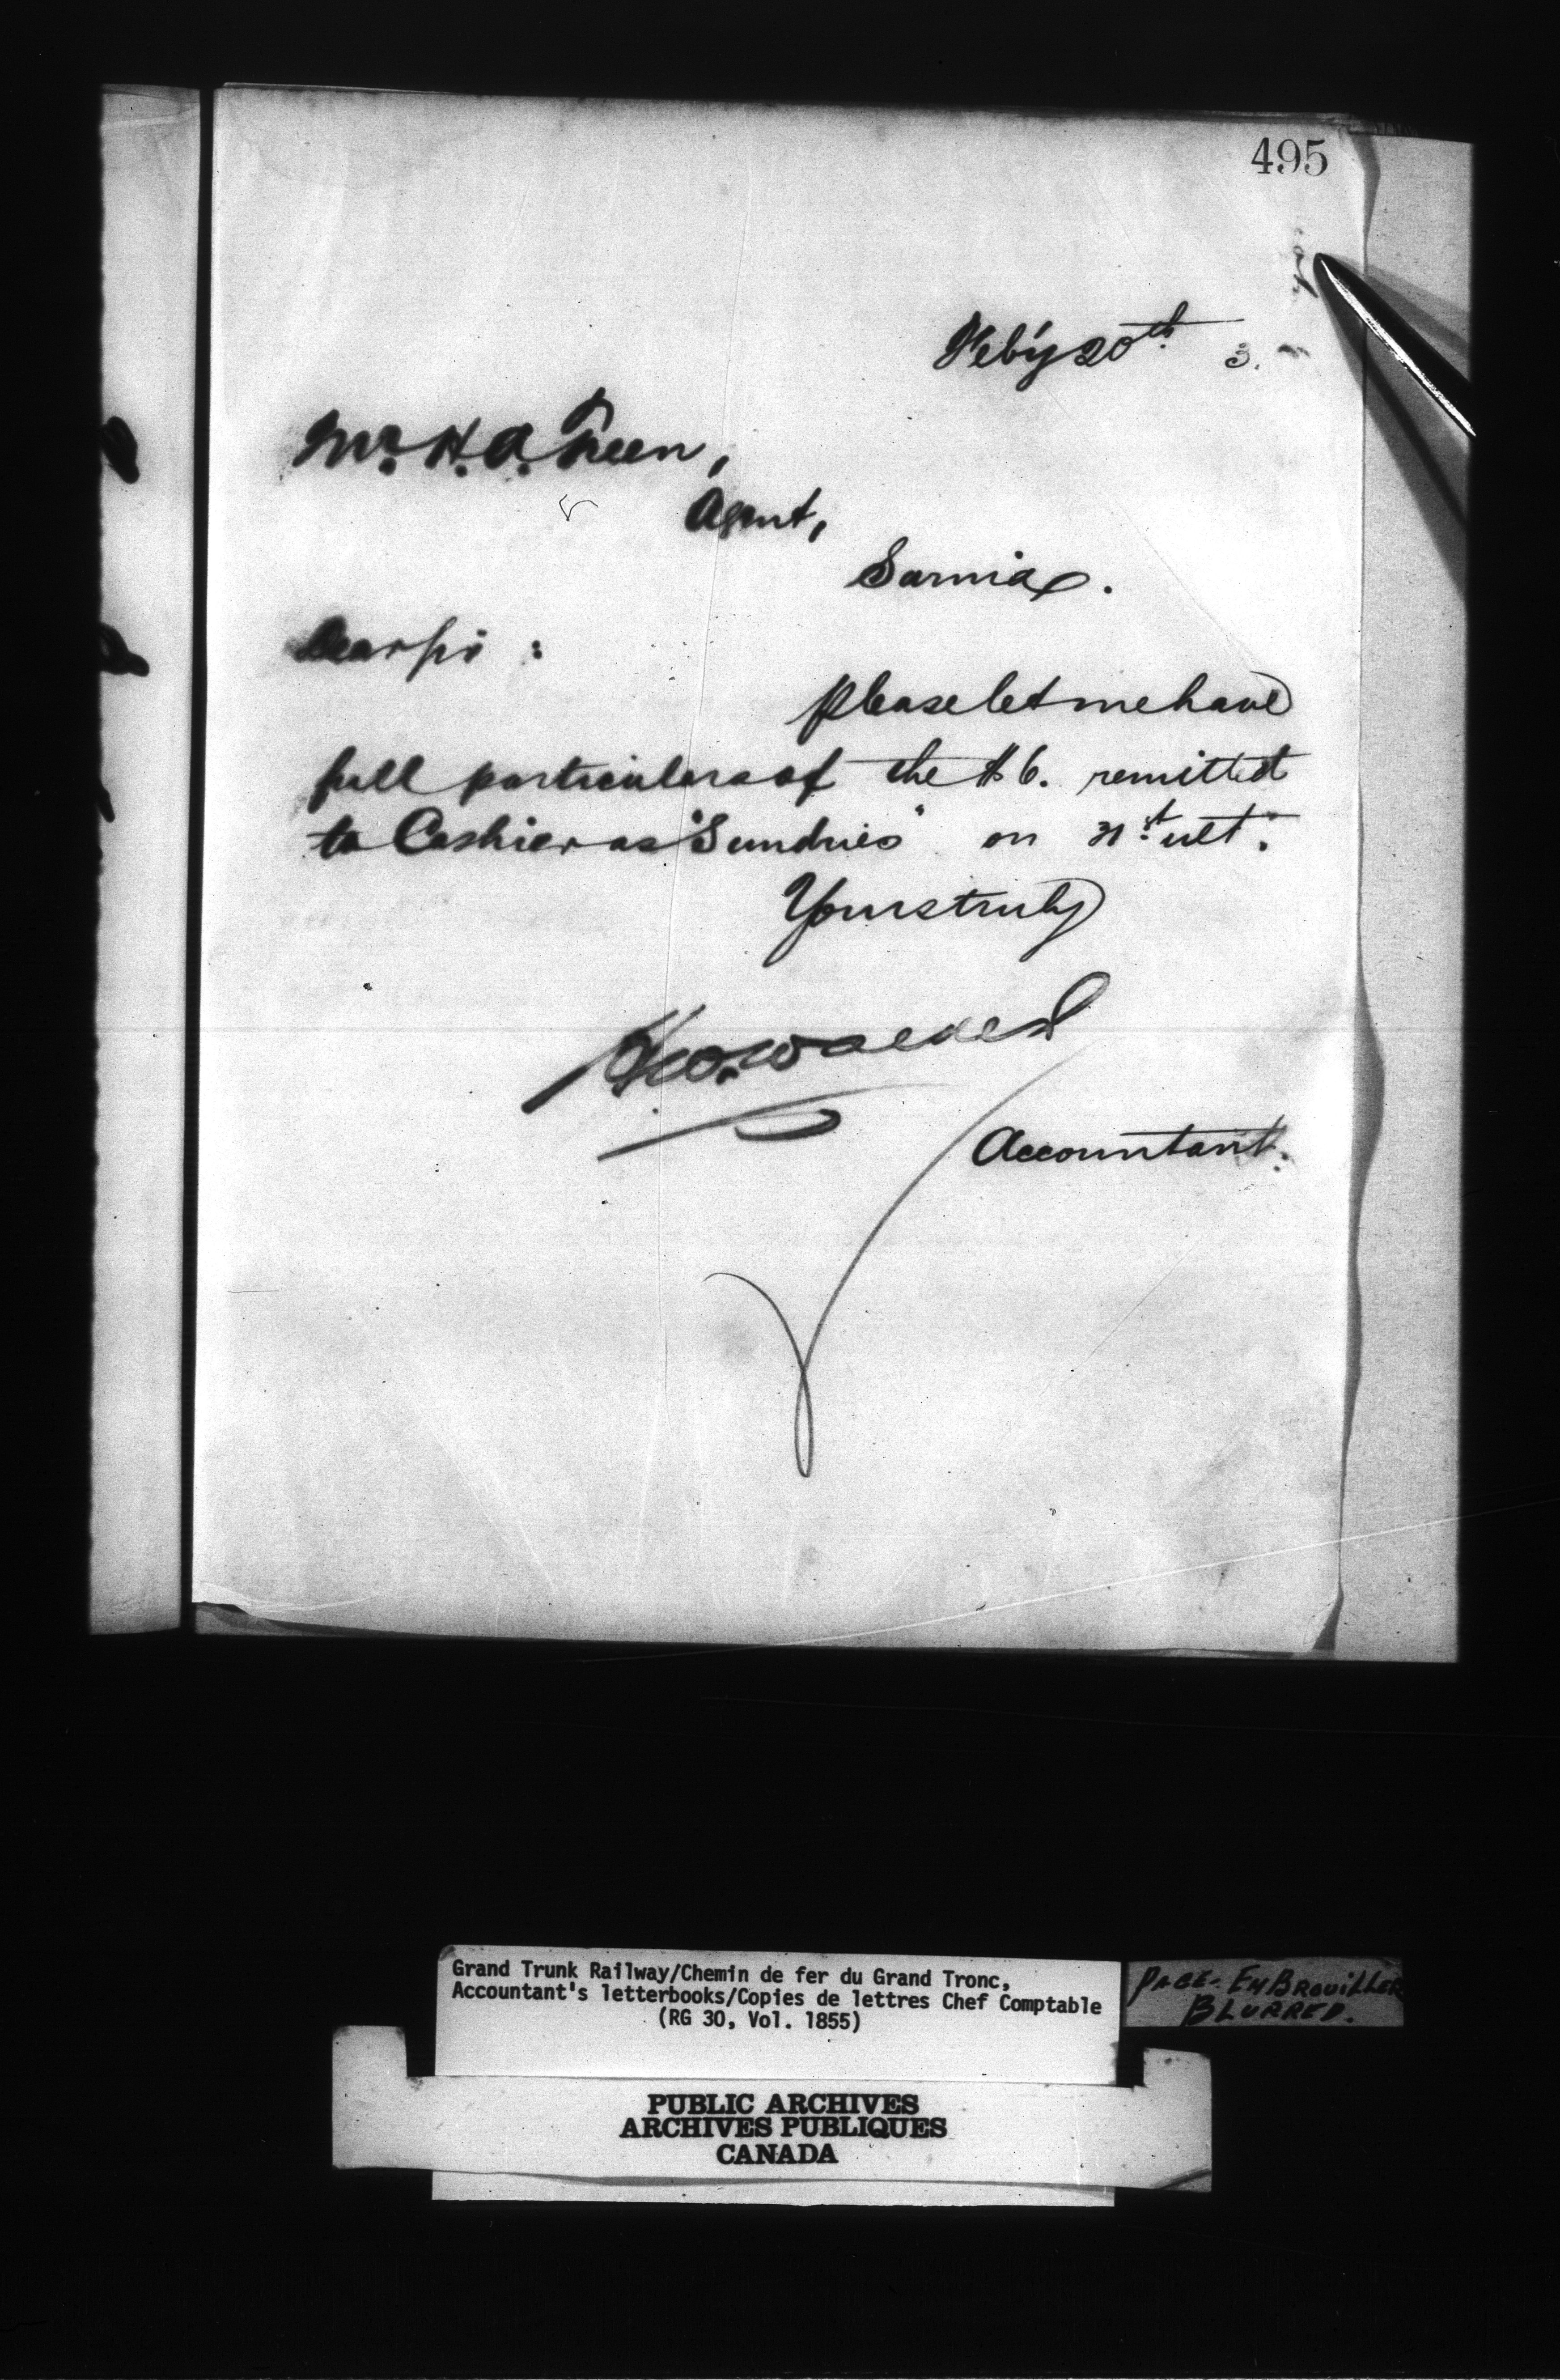 495
Feb'y 20th 3.
Mr. H. A. Treen,
Agent,
Sarnia.
Dear Sir :
Please let me have
full particulars of the $6. remitted
to Cashier as "Sundries" on 31st ult.
Yours truly
Accountant.
Grand Trunk Railway/Chemin de fer du Grand Tronc,
Accountant's letterbooks/Copies de lettres Chef Comptable
(RG 30, Vol. 1855)
PAGE - EMBROUILLER
BLURRED.
PUBLIC ARCHIVES
ARCHIVES PUBLIQUES
CANADA